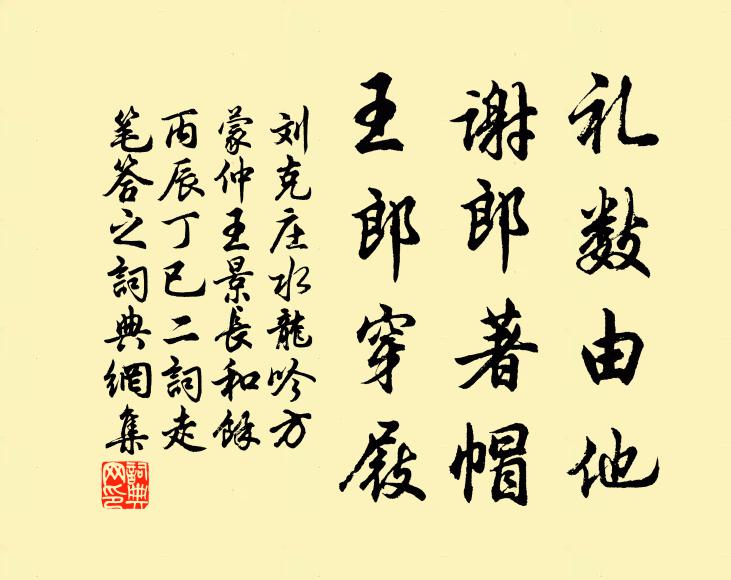 礼数由他
谢郎著帽
王郎穿屐
刘克庄水龍吟方
蒙仲王景長和馀
丙辰丁巳二詞走
笔答之詞典網集
詞典网印